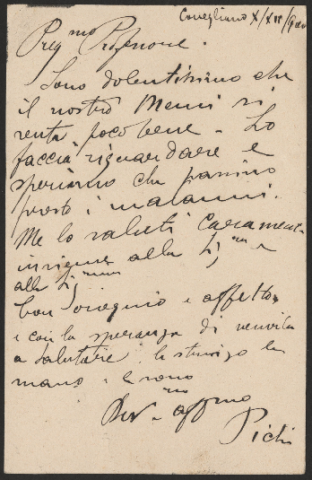 Conegliano X/XII/900
Preg.mo Professore.
Sono dolentissimo che
il nostro Memi si
senta poco bene - Lo
faccia riguardare e
speriamo che passino
presto i malanni.
Me lo saluti caramente
insieme alla Sig.ra e
alle Sig.
Con ossequio e affetto
e con la speranza di venirla
a salutare le stringo la
mano e sono
Dev.mo affmo
Pichi